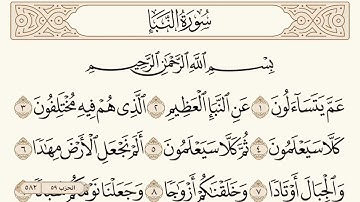 سُورَةُ النَّبَإِ
بِسْمِ اللَّهِ الرَّحْمَٰنِ الرَّحِيمِ
عَمَّ يَتَسَاءَلُونَ ١ عَنِ النَّبَإِ الْعَظِيمِ ٢ الَّذِي هُمْ فِيهِ مُخْتَلِفُونَ ٣
كَلَّا سَيَعْلَمُونَ ٤ ثُمَّ كَلَّا سَيَعْلَمُونَ ٥ أَلَمْ نَجْعَلِ الْأَرْضَ مِهَادًا ٦
وَالْجِبَالَ أَوْتَادًا ٧ وَخَلَقْنَاكُمْ أَزْوَاجًا ٨ وَجَعَلْنَا نَوْمَكُمْ سُبَاتًا
الحزب ٥٩ ٥٨٢